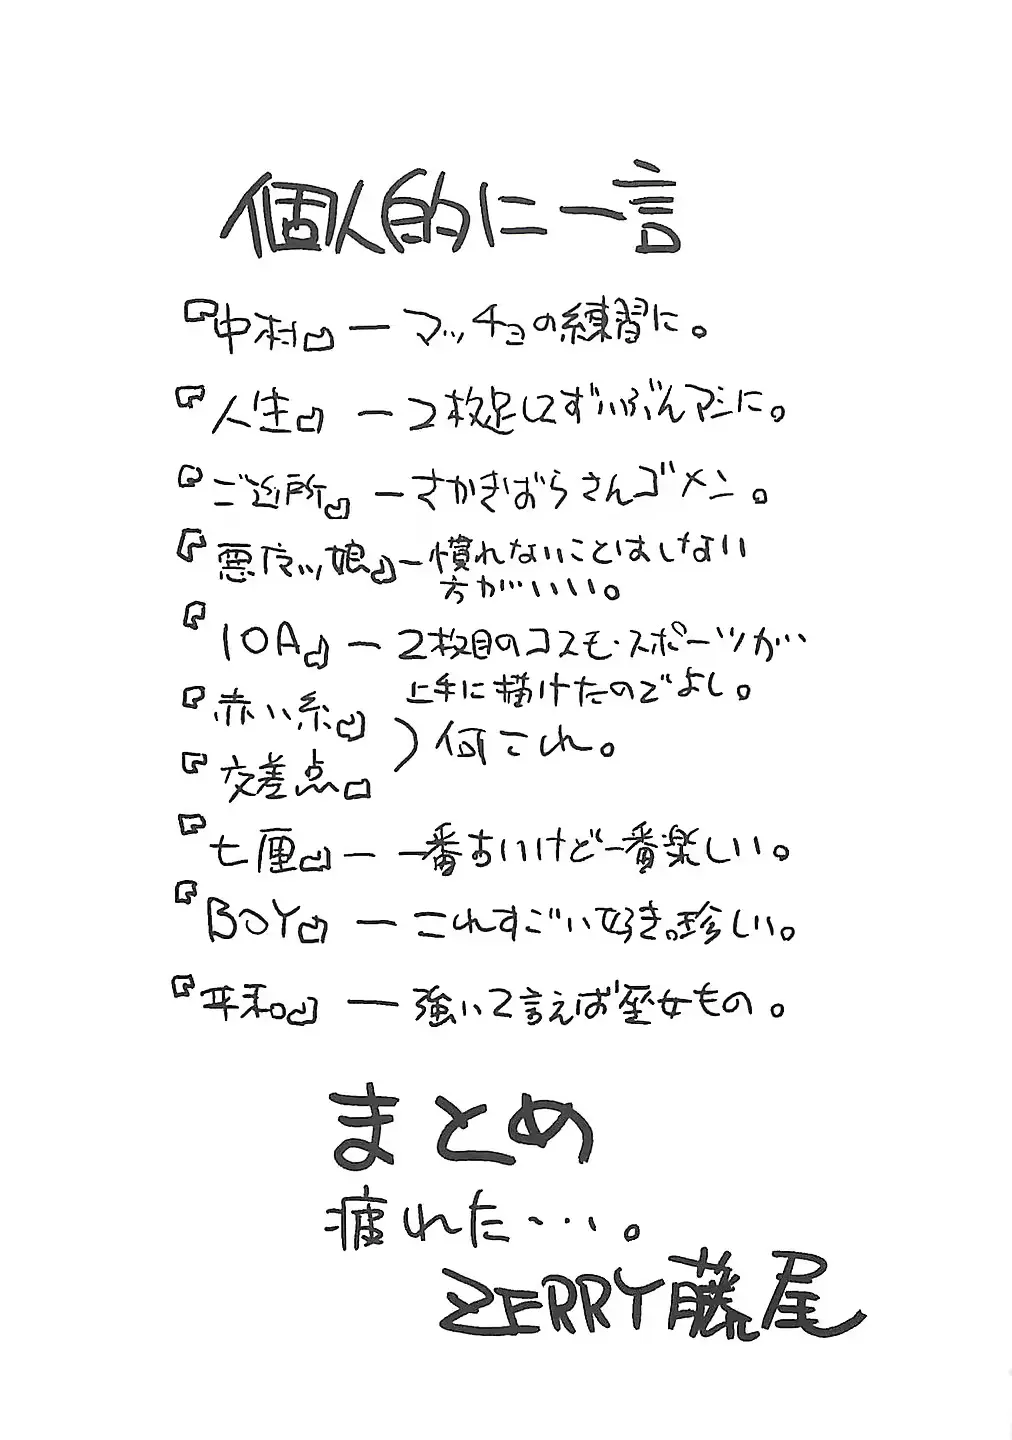 個人的に一言
『中村』― マッチョの練習に。
『人生』― 2枚足してずいぶんマシに。
『ご近所』― さかきばらさんゴメン。
『悪マッ娘』― 慣れないことはしない
方がいいい。
『10A』― 2枚目のコスモ・スポーツが…
上手に描けたのでよし。
『赤い糸』
『交差点』
) 何これ。
『七厘』― 一番古いけど一番楽しい。
『BOY』― これすごい好き。珍しい。
『平和』― 強いて言えば巫女もの。
まとめ
疲れた…。
ZERRY藤尾